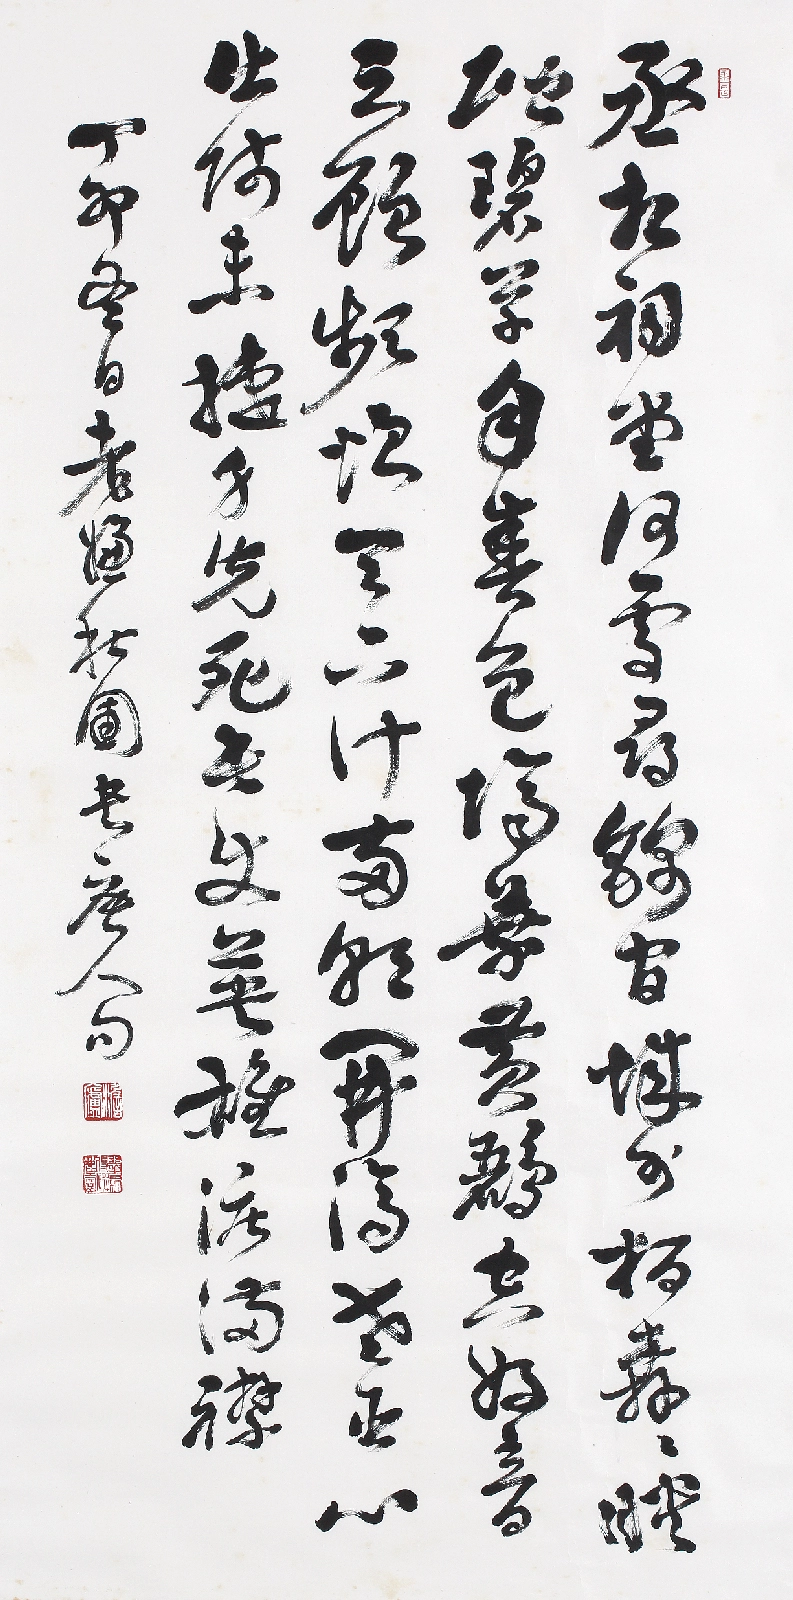 丞相祠堂何處尋錦官城外柏森〻映
階碧草自春色隔葉黃鸝空好音
三顧頻煩天下計兩朝開濟老臣心
出師未捷身先死長使英雄淚滿襟
丁卯冬日老圃書唐人句